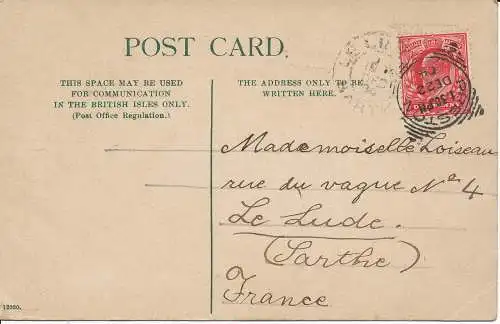 POST CARD.
THIS SPACE MAY BE USED
FOR COMMUNICATION
IN THE BRITISH ISLES ONLY.
(Post Office Regulation.)
THE ADDRESS ONLY TO BE
WRITTEN HERE.
Mademoiselle Loiseau
rue du vague No 4
Le Lude.
(Sarthe)
France
12080.